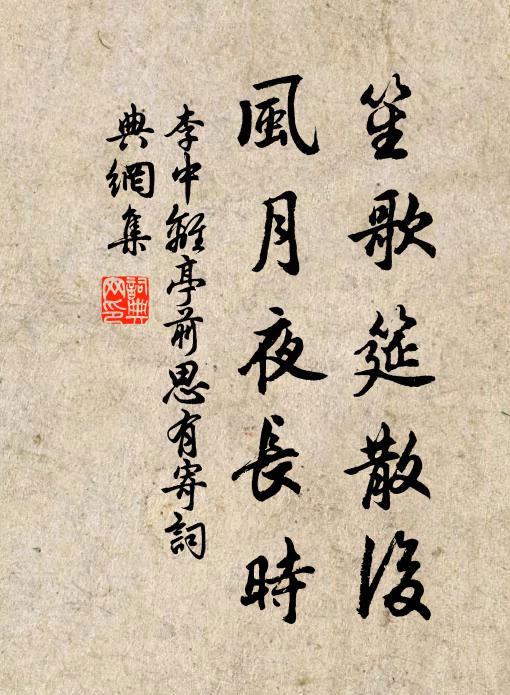 笙歌筵散後
風月夜長時
李中離亭前思有寄詞
典網集
詞典
网印